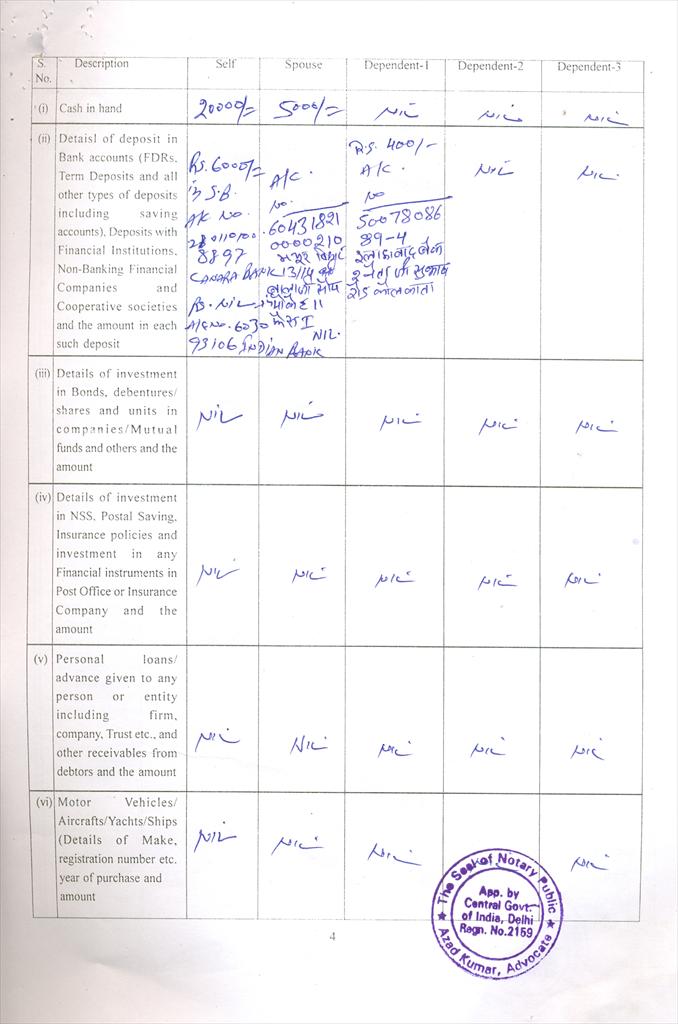 S. No. Description Self Spouse Dependent-1 Dependent-2 Dependent-3
(i) Cash in hand 20000/= 5000/= NIL NIL NIL
(ii) Detaisl of deposit in
Bank accounts (FDRs,
Term Deposits and all
other types of deposits
including saving
accounts), Deposits with
Financial Institutions,
Non-Banking Financial
Companies and
Cooperative societies
and the amount in each
such deposit
Rs. 6000/=
in S.B.
A/c No.
8897
CANARA BANK
Rs. NIL
A/c No. 6030
93106 INDIAN BANK
A/C.
No.
60431821
0000210
13/14
NIL.
R.S. 400/-
A/C.
No
50078086
89-4
इलाहाबाद बैंक
रोड कोलकाता
NIL
NIL
(iii) Details of investment
in Bonds, debentures/
shares and units in
companies/Mutual
funds and others and the
amount
NIL NIL NIL NIL NIL
(iv) Details of investment
in NSS, Postal Saving,
Insurance policies and
investment in any
Financial instruments in
Post Office or Insurance
Company and the
amount
NIL NIL NIL NIL NIL
(v) Personal loans/
advance given to any
person or entity
including firm,
company, Trust etc., and
other receivables from
debtors and the amount
NIL NIL NIL NIL NIL
(vi) Motor Vehicles/
Aircrafts/Yachts/Ships
(Details of Make,
registration number etc.
year of purchase and
amount
NIL NIL NIL NIL
The Seal of Notary Public
App. by
Central Govt.
of India, Delhi
Regn. No.2159
Azad Kumar, Advocate
4